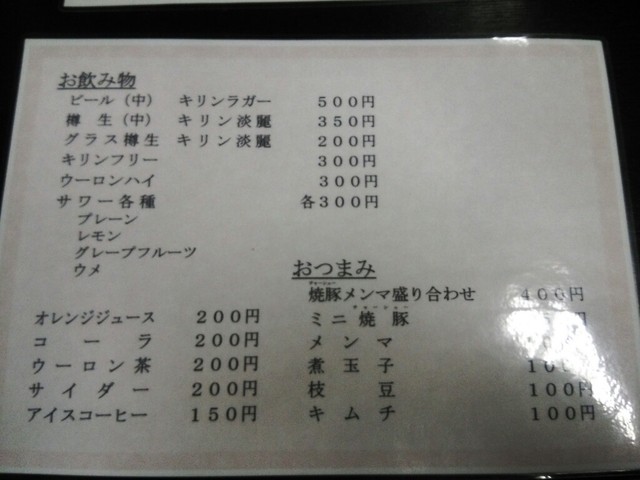 お飲み物
ビール（中） キリンラガー ５００円
樽生（中） キリン淡麗 ３５０円
グラス樽生 キリン淡麗 ２００円
キリンフリー ３００円
ウーロンハイ ３００円
サワー各種 各３００円
プレーン
レモン
グレープフルーツ
ウメ
オレンジジュース ２００円
コーラ ２００円
ウーロン茶 ２００円
サイダー ２００円
アイスコーヒー １５０円
おつまみ
チャーシュー
焼豚メンマ盛り合わせ ４００円
チャーシュー
ミニ焼豚 円
メンマ
煮玉子 １００円
枝豆 １００円
キムチ １００円